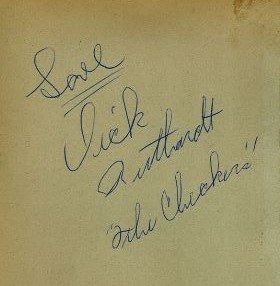 Love
Dick
Ruthardt
"The Checkers"